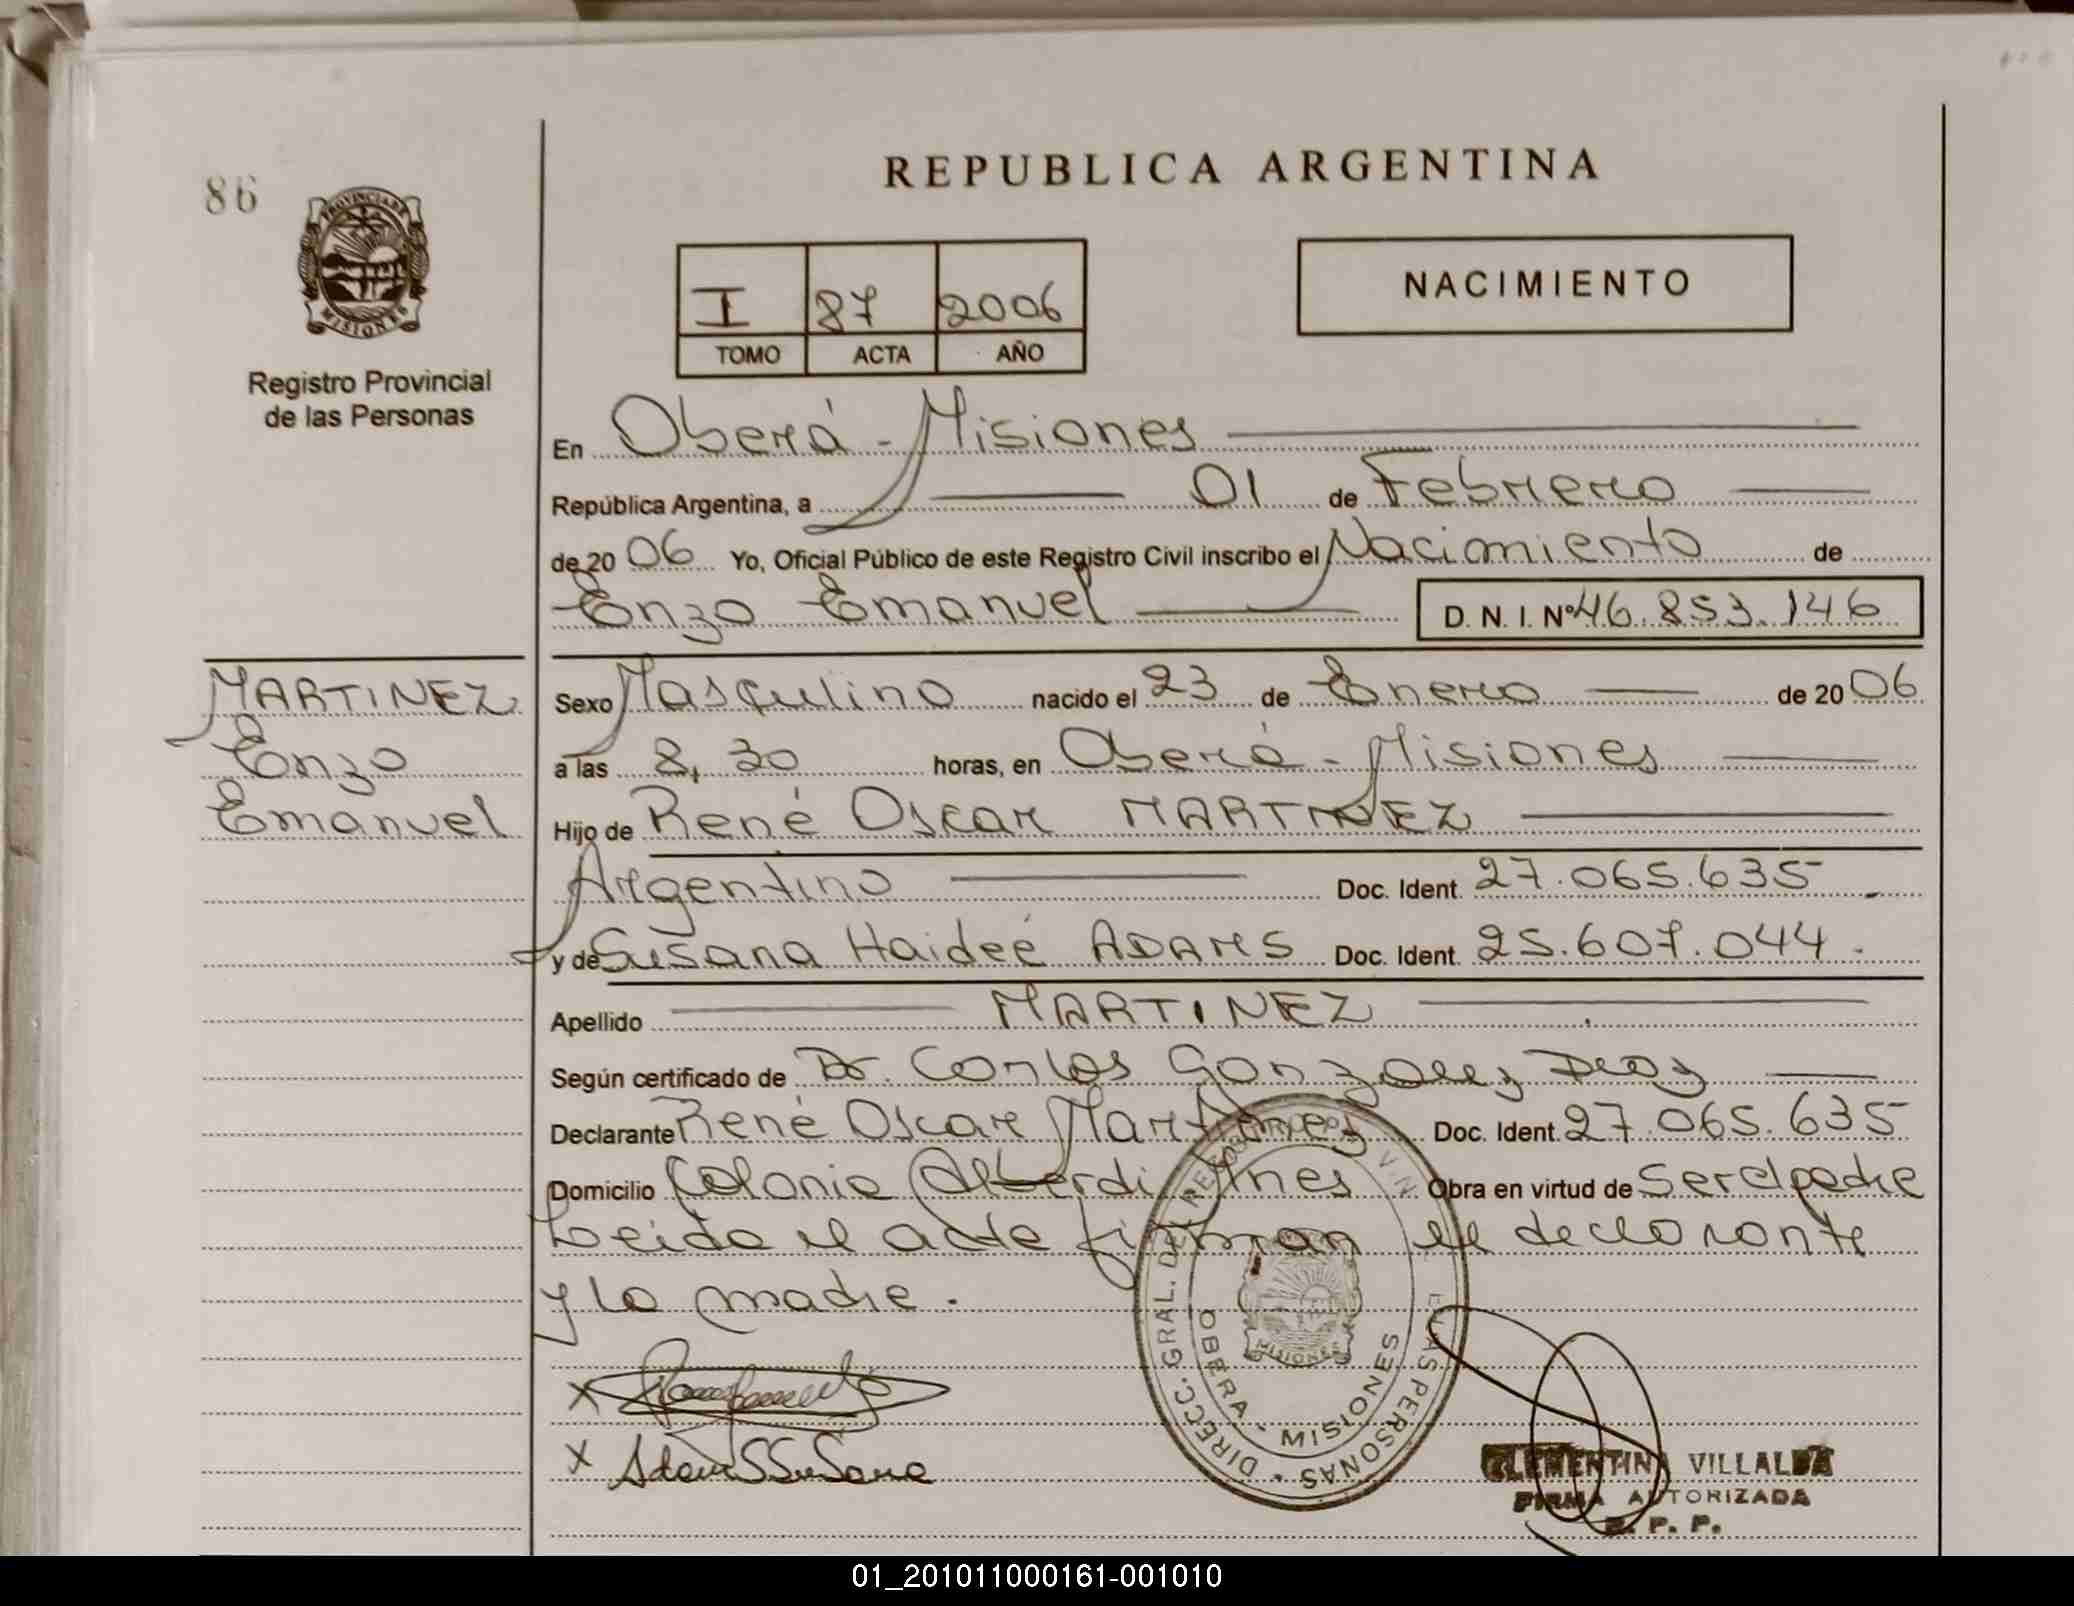 REPUBLICA ARGENTINA
86
PROVINCIA DE
MISIONES
NACIMIENTO
I 87 2006
TOMO ACTA AÑO
Registro Provincial
de las Personas
En Oberá - Misiones
República Argentina, a 01 de Febrero
de 2006 Yo, Oficial Público de este Registro Civil inscribo el Nacimiento de
Enzo Emanuel D. N. I. Nº 46.853.146
MARTINEZ
Enzo
Emanuel
Sexo Masculino nacido el 23 de Enero de 2006
a las 8,30 horas, en Oberá - Misiones
Hijo de René Oscar MARTINEZ
Argentino Doc. Ident. 27.065.635
y de Susana Haideé ADAMS Doc. Ident. 25.607.044.
Apellido MARTINEZ
Según certificado de Dr. Carlos Gonzalez
Declarante René Oscar Martinez Doc. Ident. 27.065.635
Domicilio Colonia Alberdi Mnes Obra en virtud de Ser el padre
Leida el acta firman el declarante
y la madre.
DIRECC. GRAL. DEL REG. PROVIN DE LAS PERSONAS
OBERA - MISIONES
MISIONES
X
X Adams Susana
CLEMENTINA VILLALBA
FIRMA AUTORIZADA
R. P. P.
01_201011000161-001010